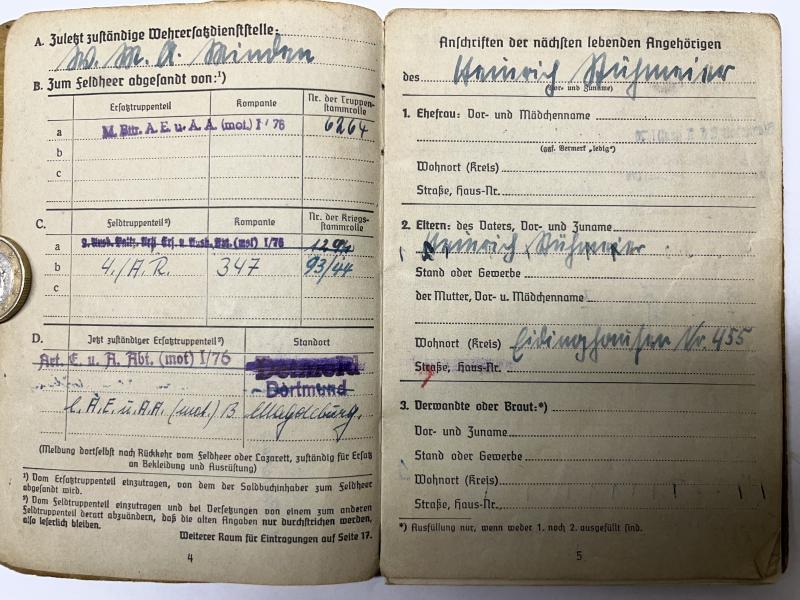 A. Zuletzt zuständige Wehrersatzdienststelle:
W. M. A. Minden
B. Zum Feldheer abgesandt von:¹)
Ersatztruppenteil
Kompanie
Nr. der Truppenstammrolle
a
M. Bttr. A. E. u. A. A. (mot.) I/76
6264
b
c
C.
Feldtruppenteil²)
Kompanie
Nr. der Kriegsstammrolle
a
(mot) I/76
1294
b
4./A.R.
347
93/44
c
D.
Jetzt zuständiger Ersatztruppenteil²)
Standort
Art. E. u. A. Abt. (mot) I/76
Detmold
Dortmund
A.E.u.A.A. (mot.) B
Magdeburg.
(Meldung dortselbst nach Rückkehr vom Feldheer oder Lazarett, zuständig für Ersatz
an Bekleidung und Ausrüstung)
¹) Vom Ersatztruppenteil einzutragen, von dem der Soldbuchinhaber zum Feldheer
abgesandt wird.
²) Vom Feldtruppenteil einzutragen und bei Versetzungen von einem zum anderen
Feldtruppenteil derart abzuändern, daß die alten Angaben nur durchstrichen werden,
also leserlich bleiben.
Weiterer Raum für Eintragungen auf Seite 17.
4
Anschriften der nächsten lebenden Angehörigen
des Heinrich Stühmeier
(Vor- und Zuname)
1. Ehefrau: Vor- und Mädchenname
(ggf. Vermerk „ledig“)
Wohnort (Kreis)
Straße, Haus-Nr.
2. Eltern: des Vaters, Vor- und Zuname
Heinrich Stühmeier
Stand oder Gewerbe
der Mutter, Vor- u. Mädchenname
Wohnort (Kreis) Eidinghausen Nr. 455
Straße, Haus-Nr.
3. Verwandte oder Braut:*)
Vor- und Zuname
Stand oder Gewerbe
Wohnort (Kreis)
Straße, Haus-Nr.
*) Ausfüllung nur, wenn weder 1. noch 2. ausgefüllt sind.
5